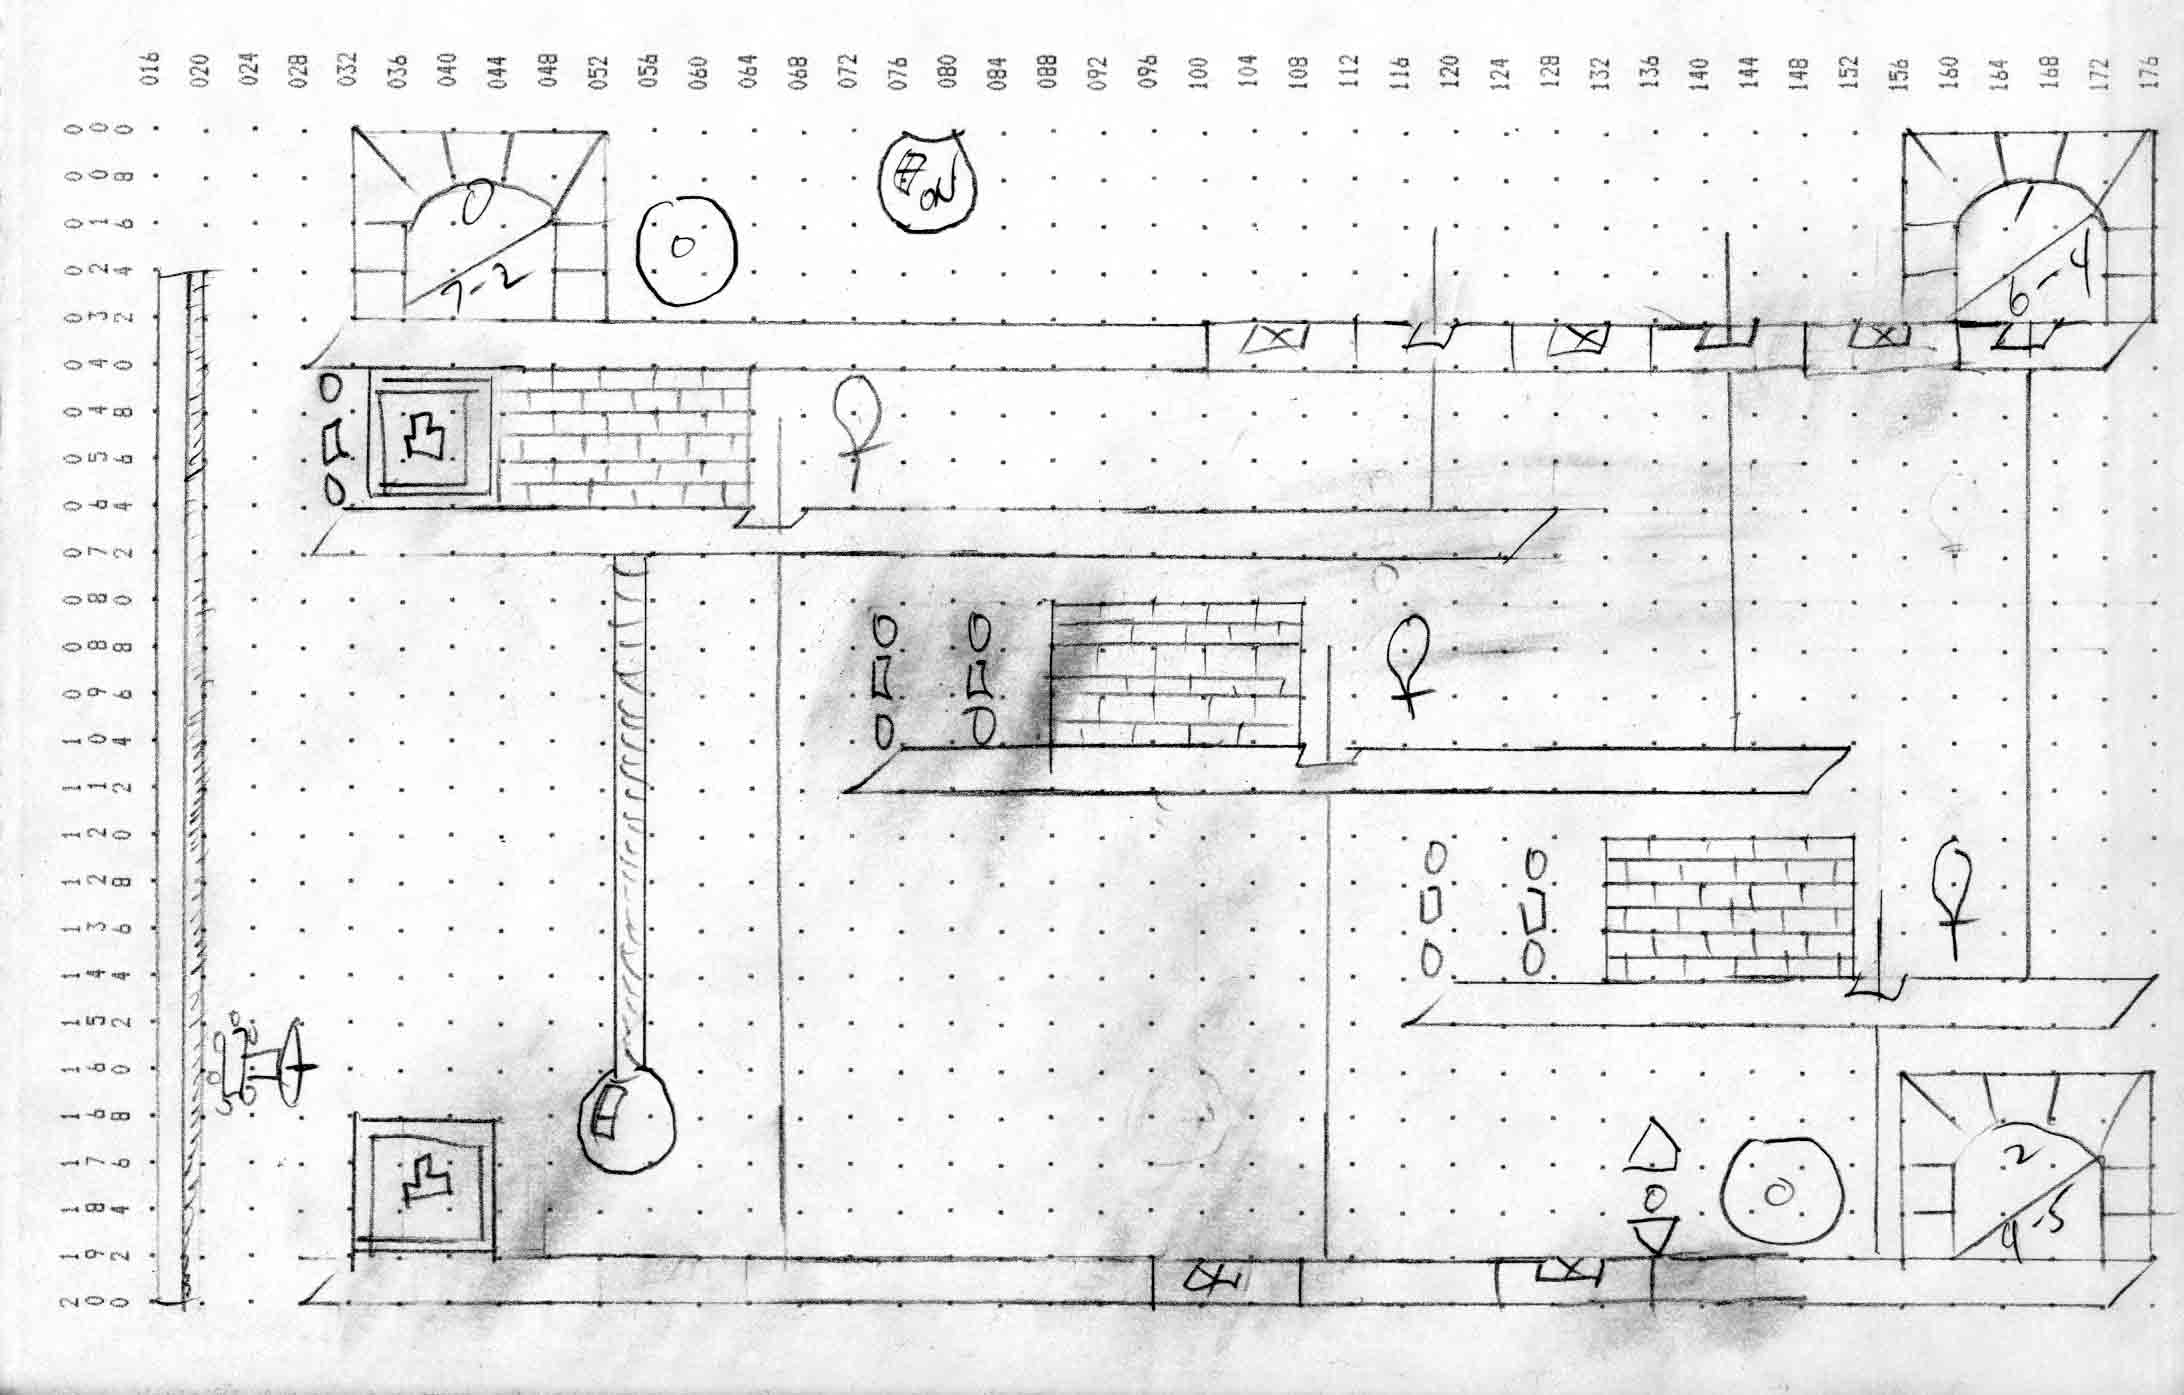 016 020 024 028 032 036 040 044 048 052 056 060 064 068 072 076 080 084 088 092 096 100 104 108 112 116 120 124 128 132 136 140 144 148 152 156 160 164 168 172 176
000
008
016
024
032
040
048
056
064
072
080
088
096
104
112
120
128
136
144
152
160
168
176
184
192
200
0
7-2
1
6-4
2
4-5